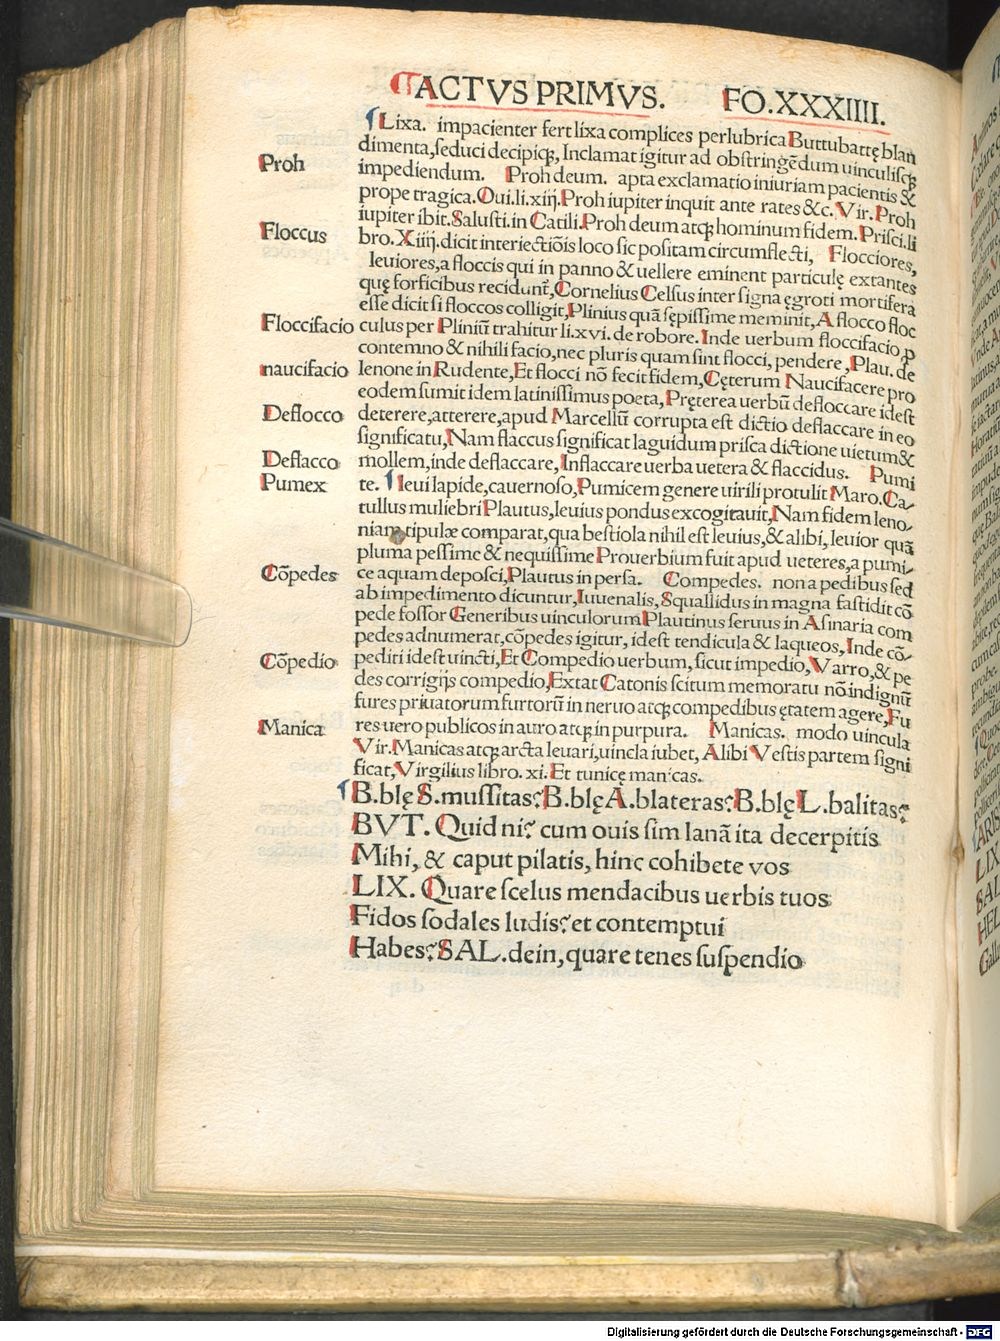 ACTVS PRIMVS. FO.XXXIIII.
Lixa. impacienter fert lixa complices perlubrica Buttubattę blan
dimenta, seduci decipiqꝫ, Inclamat igitur ad obstringēdum uinculisqꝫ
Proh impediendum. Proh deum. apta exclamatio iniuriam pacientis &
prope tragica. Oui.li.xiij. Proh iupiter inquit ante rates &c. Vir. Proh
iupiter ibit. Salusti. in Catili. Proh deum atqꝫ hominum fidem. Prisci. li
Floccus bro. Xiiij. dicit interiectiōis loco sic positam circumflecti, Flocciores,
leuiores, a floccis qui in panno & uellere eminent particulę extantes
quę forficibus recidunt̄, Cornelius Celsus inter signa ęgroti mortifera
esse dicit si floccos colligit, Plinius quā sępissime meminit, A flocco floc
Floccifacio culus per Pliniū trahitur li.xvi. de robore. Inde uerbum floccifacio ꝓ
contemno & nihili facio, nec pluris quam sint flocci, pendere, Plau. de
naucifacio lenone in Rudente, Et flocci nō fecit fidem, Cęterum Naucifacere pro
eodem sumit idem latinissimus poeta, Pręterea uerbū defloccare idest
Deflocco deterere, atterere, apud Marcellū corrupta est dictio deflaccare in eo
significatu, Nam flaccus significat laguidum prisca dictione uietum &
Deflacco mollem, inde deflaccare, Inflaccare uerba uetera & flaccidus. Pumi
Pumex te. leui lapide, cauernoso, Pumicem genere uirili protulit Maro. Ca-
tullus muliebri Plautus, leuius pondus excogitauit, Nam fidem leno-
niam tipulæ comparat, qua bestiola nihil est leuius, & alibi, leuior quā
pluma pessime & nequissime Prouerbium fuit apud ueteres, a pumi-
Cōpedes ce aquam deposci, Plautus in persa. Compedes. non a pedibus sed
ab impedimento dicuntur, Iuuenalis, Squallidus in magna fastidit cō
pede fossor Generibus uinculorum Plautinus seruus in Asinaria com
pedes adnumerat, cōpedes igitur, idest tendicula & laqueos, Inde cō-
Cōpedio pediti idest uincti, Et Compedio uerbum, sicut impedio, Varro, & pe
des corrigijs compedio, Extat Catonis scitum memoratu nō indignū
fures priuatorum furtorū in neruo atqꝫ compedibus ętatem agere, Fu
Manica res uero publicos in auro atqꝫ in purpura. Manicas. modo uincula
Vir. Manicas atqꝫ arcta leuari, uincla iubet, Alibi Vestis partem signi
ficat, Virgilius libro. xi. Et tunicę manicas.
B.blę S. mussitas? B.blę A. blateras? B.blę L. balitas?
BVT. Quid ni? cum ouis sim lanā ita decerpitis
Mihi, & caput pilatis, hinc cohibete vos
LIX. Quare scelus mendacibus uerbis tuos
Fidos sodales ludis? et contemptui
Habes? SAL. dein, quare tenes suspendio
Digitalisierung gefördert durch die Deutsche Forschungsgemeinschaft - DFG